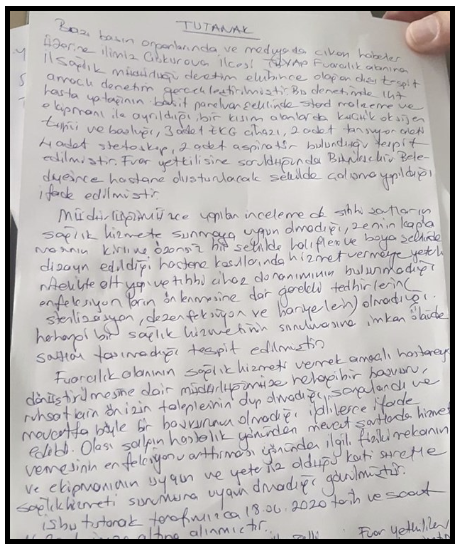 TUTANAK
Bazı basın organlarında ve medyada çıkan haberler
üzerine ilimiz Çukurova ilçesi TÜYAP Fuarcılık alanına
İl Sağlık müdürlüğü denetim ekibince olağandışı tespit
amaçlı denetim gerçekleştirilmiştir. Bu denetimde
hasta yatağının basit paravan şeklinde stand malzeme ve
ekipmanı ile ayrıldığı bir kısım alanlarda küçük oksijen
tüpü ve başlığı, 3 adet EKG cihazı, 2 adet tansiyon aleti
4 adet stetoskop, 2 adet aspiratör bulunduğu tespit
edilmiştir. Fuar yetkilisine sorulduğunda Büyükşehir Bele-
diyesince hastane oluşturulacak şekilde çalışma yapıldığı
ifade edilmiştir
Müdürlüğümüzce yapılan incelemede sıhhi şartların
sağlık hizmeti sunmaya uygun olmadığı, zemin kapla
masının kirli ve özensiz bir şekilde halıflex ve boya şeklinde
dizayn edildiği hastane koşullarında hizmet vermeye yeterli
nitelikte alt yapı ve tıbbi cihaz donanımının bulunmadığı
enfeksiyonların önlenmesine dair gerekli tedbirlerin (
sterilizasyon, dezenfeksiyon ve hariyelerin) olmadığı.
herhangi bir sağlık hizmetinin sunulmasına imkan ölçüde
şartları taşımadığı tespit edilmiştir
Fuarcılık alanının sağlık hizmeti vermek amaçlı hastaneye
dönüştürülmesine dair müdürlüğümüze herhangi bir başvuru,
ruhsat için ön izin taleplerinin olup olmadığı, sorgulandı ve
mevcutta böyle bir başvurunun olmadığı ifade
edildi. Olası salgın hastalık yönünden mevcut şartlarda hizmet
vermesinin enfeksiyonu arttırması yönünden ilgili fiziki mekanın
ve ekipmanının uygun ve yetersiz olduğu kati suretle
sağlık hizmeti sunumuna uygun olmadığı görülmüştür.
işbu tutanak tarafımızca 18.06.2020 tarih ve saat
altına alınmıştır.
Fuar yetkilileri